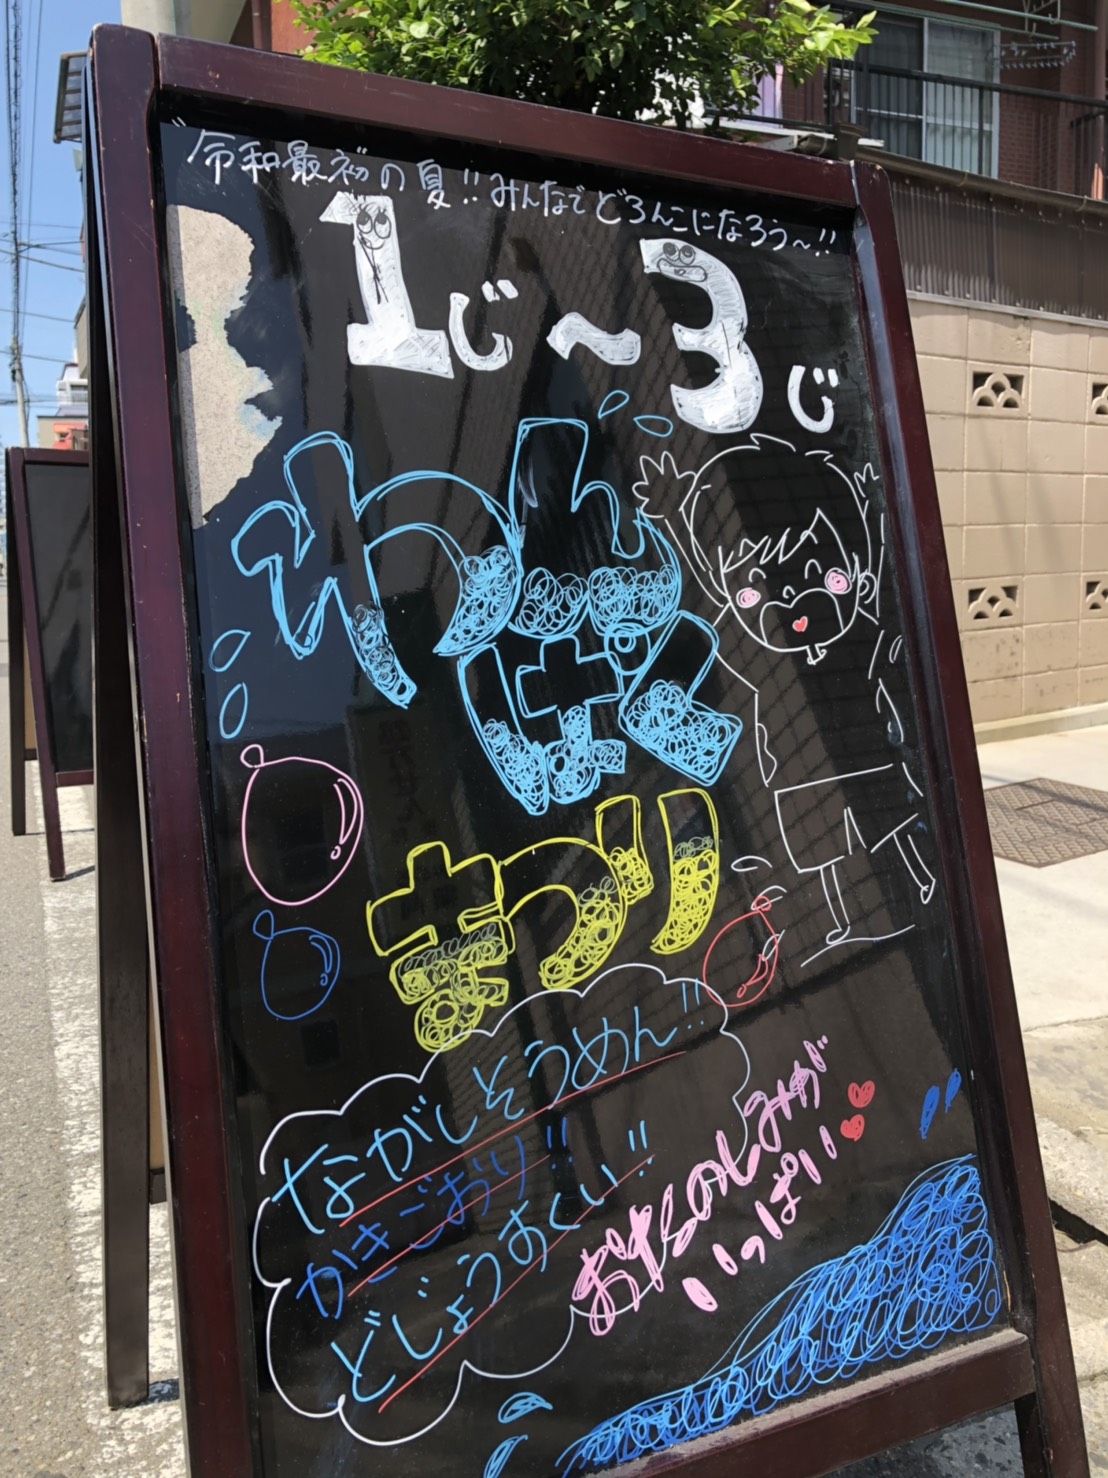 令和最初の夏!!みんなでどろんこになろう〜!!
1じ〜3じ
わん
ぱく
まつり
ながしそうめん!!
かきごおり!!
どじょうすくい!!
おたのしみが
いっぱい